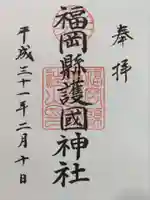 奉拝
福岡縣護國神社
平成三十一年二月十日